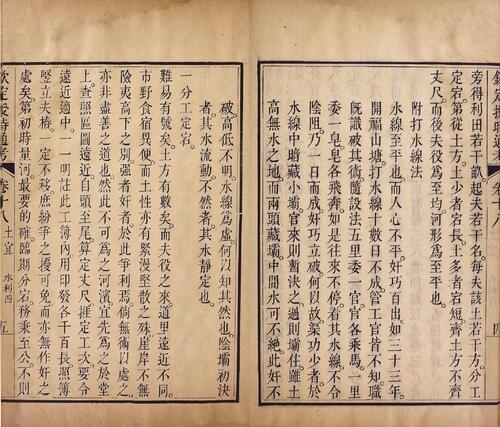 欽定授時通考
旁得利田若干畝起夫若干名每夫該土若干方分工
定宕第從土方上少者宕長上多者宕短齊土方不齊
丈尺而後夫役爲至均河形爲至平也
附打水線法
水線至平也而人心不平奸巧百出如三十三年
開福山塘打水線十數日不成管工官皆不知職
旣識破其術隨設法五里委一官官各乘馬一里
委一皁皁各飛奔如是往來不停看其水線不令
陰阻乃一日而成奸巧立破何以故葢功少者於
水線中暗藏小壩官來則暫決之過則壩住雖土
高無水之地而兩頭藏壩中間水可不絶此奸不
破高低不明水線爲虛何以知其然也陰壩初決
者其水流動不然者其水靜定也
一分工定宕
難易有號矣土方有數矣而夫役之來道里遠近不同
市野食宿異便而土性亦有緊漫堅散之殊崖岸不無
險夷高下之別強者奸者於此爭利焉倘無術以處之
亦非盡善之道也然此不可爲之於河濱宜先爲之於堂
上查照區圖遠近自頭至尾算定丈尺捱定工次要令
遠近適中一一明註此工簿內用印發各千百長照簿
竪立夫樁一定不移庶紛爭之擾可免而亦無作奸之
處矣第初時量河最要的確臨期分宕務秉至公不則
欽定授時通考 卷十八 土宜 水利四 五